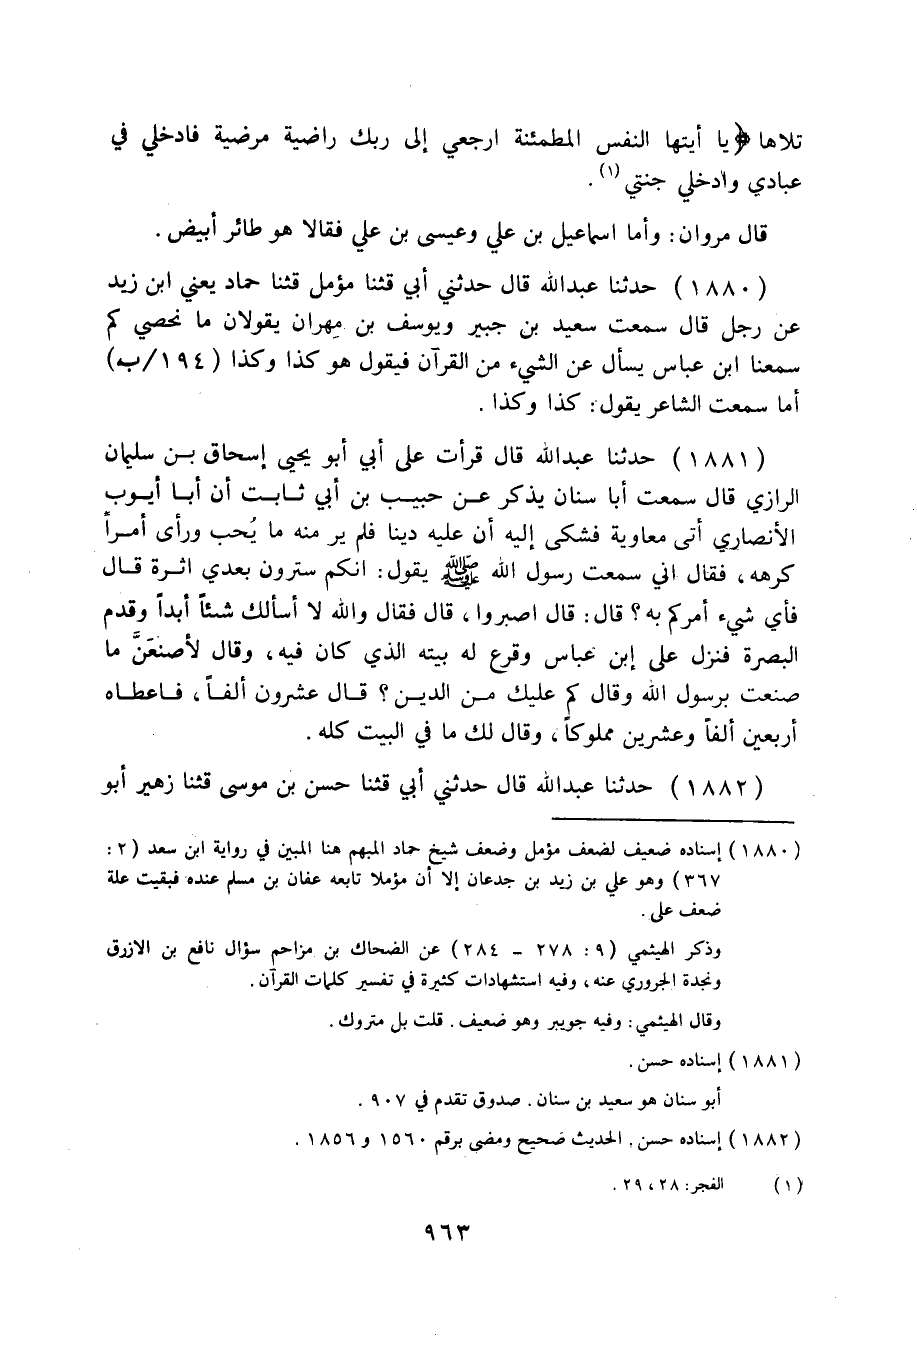 تلاها ﴿يا أيتها النفس المطمئنة ارجعي إلى ربك راضية مرضية فادخلي في
عبادي وادخلي جنتي (١) .
قال مروان : وأما اسماعيل بن علي وعيسى بن علي فقالا هو طائر أبيض .
(١٨٨٠) حدثنا عبدالله قال حدثني أبي قثنا مؤمل قثنا حماد يعني ابن زيد
عن رجل قال سمعت سعيد بن جبير ويوسف بن مهران يقولان ما نحصي كم
سمعنا ابن عباس يسأل عن الشيء من القرآن فيقول هو كذا وكذا (١٩٤/ب)
أما سمعت الشاعر يقول : كذا وكذا .
(١٨٨١) حدثنا عبدالله قال قرأت على أبي أبو يحيى إسحاق بـن سليمان
الرازي قال سمعت أبا سنان يذكر عـن حبيـب بن أبي ثـابـت أن أبـا أيـوب
الأنصاري أتى معاوية فشكى إليه أن عليه دينا فلم ير منه ما يُحب ورأى أمـراً
كرهه ، فقال اني سمعت رسول الله ﷺ يقول : انكم سترون بعدي اثـرة قـال
فأي شيء أمركم به ؟ قال : قال اصبروا ، قال فقال والله لا أسألك شئاً أبداً وقدم
البصرة فنزل على إبن عباس وفرع له بيته الذي كان فيه ، وقال لأصنعَنَّ ما
صنعت برسول الله وقال كم عليك مـن الديـن ؟ قـال عشرون ألفـاً ، فـاعطـاه
أربعين ألفاً وعشرين مملوكاً ، وقال لك ما في البيت كله .
(١٨٨٢) حدثنا عبدالله قال حدثني أبي قثنا حسن بن موسى قثنا زهير أبو
(١٨٨٠) إسناده ضعيف لضعف مؤمل وضعف شيخ حماد المبهم هنا المبين في رواية ابن سعد (٢ :
٣٦٧) وهو علي بن زيد بن جدعان إلا أن مؤملا تابعه عفان بن مسلم عنده فبقيت علة
ضعف علي .
وذكر الهيثمي (٩ : ٢٧٨ - ٢٨٤) عن الضحاك بن مزاحم سؤال نافع بن الازرق
ونجدة الجروري عنه ، وفيه استشهادات كثيرة في تفسير كلمات القرآن .
وقال الهيثمي : وفيه جويبر وهو ضعيف . قلت بل متروك .
(١٨٨١) إسناده حسن .
أبو سنان هو سعيد بن سنان . صدوق تقدم في ٩٠٧ .
(١٨٨٢) إسناده حسن . الحديث صحيح ومضى برقم ١٥٦٠ و ١٨٥٦ .
(١) الفجر : ٢٨ ، ٢٩ .
٩٦٣